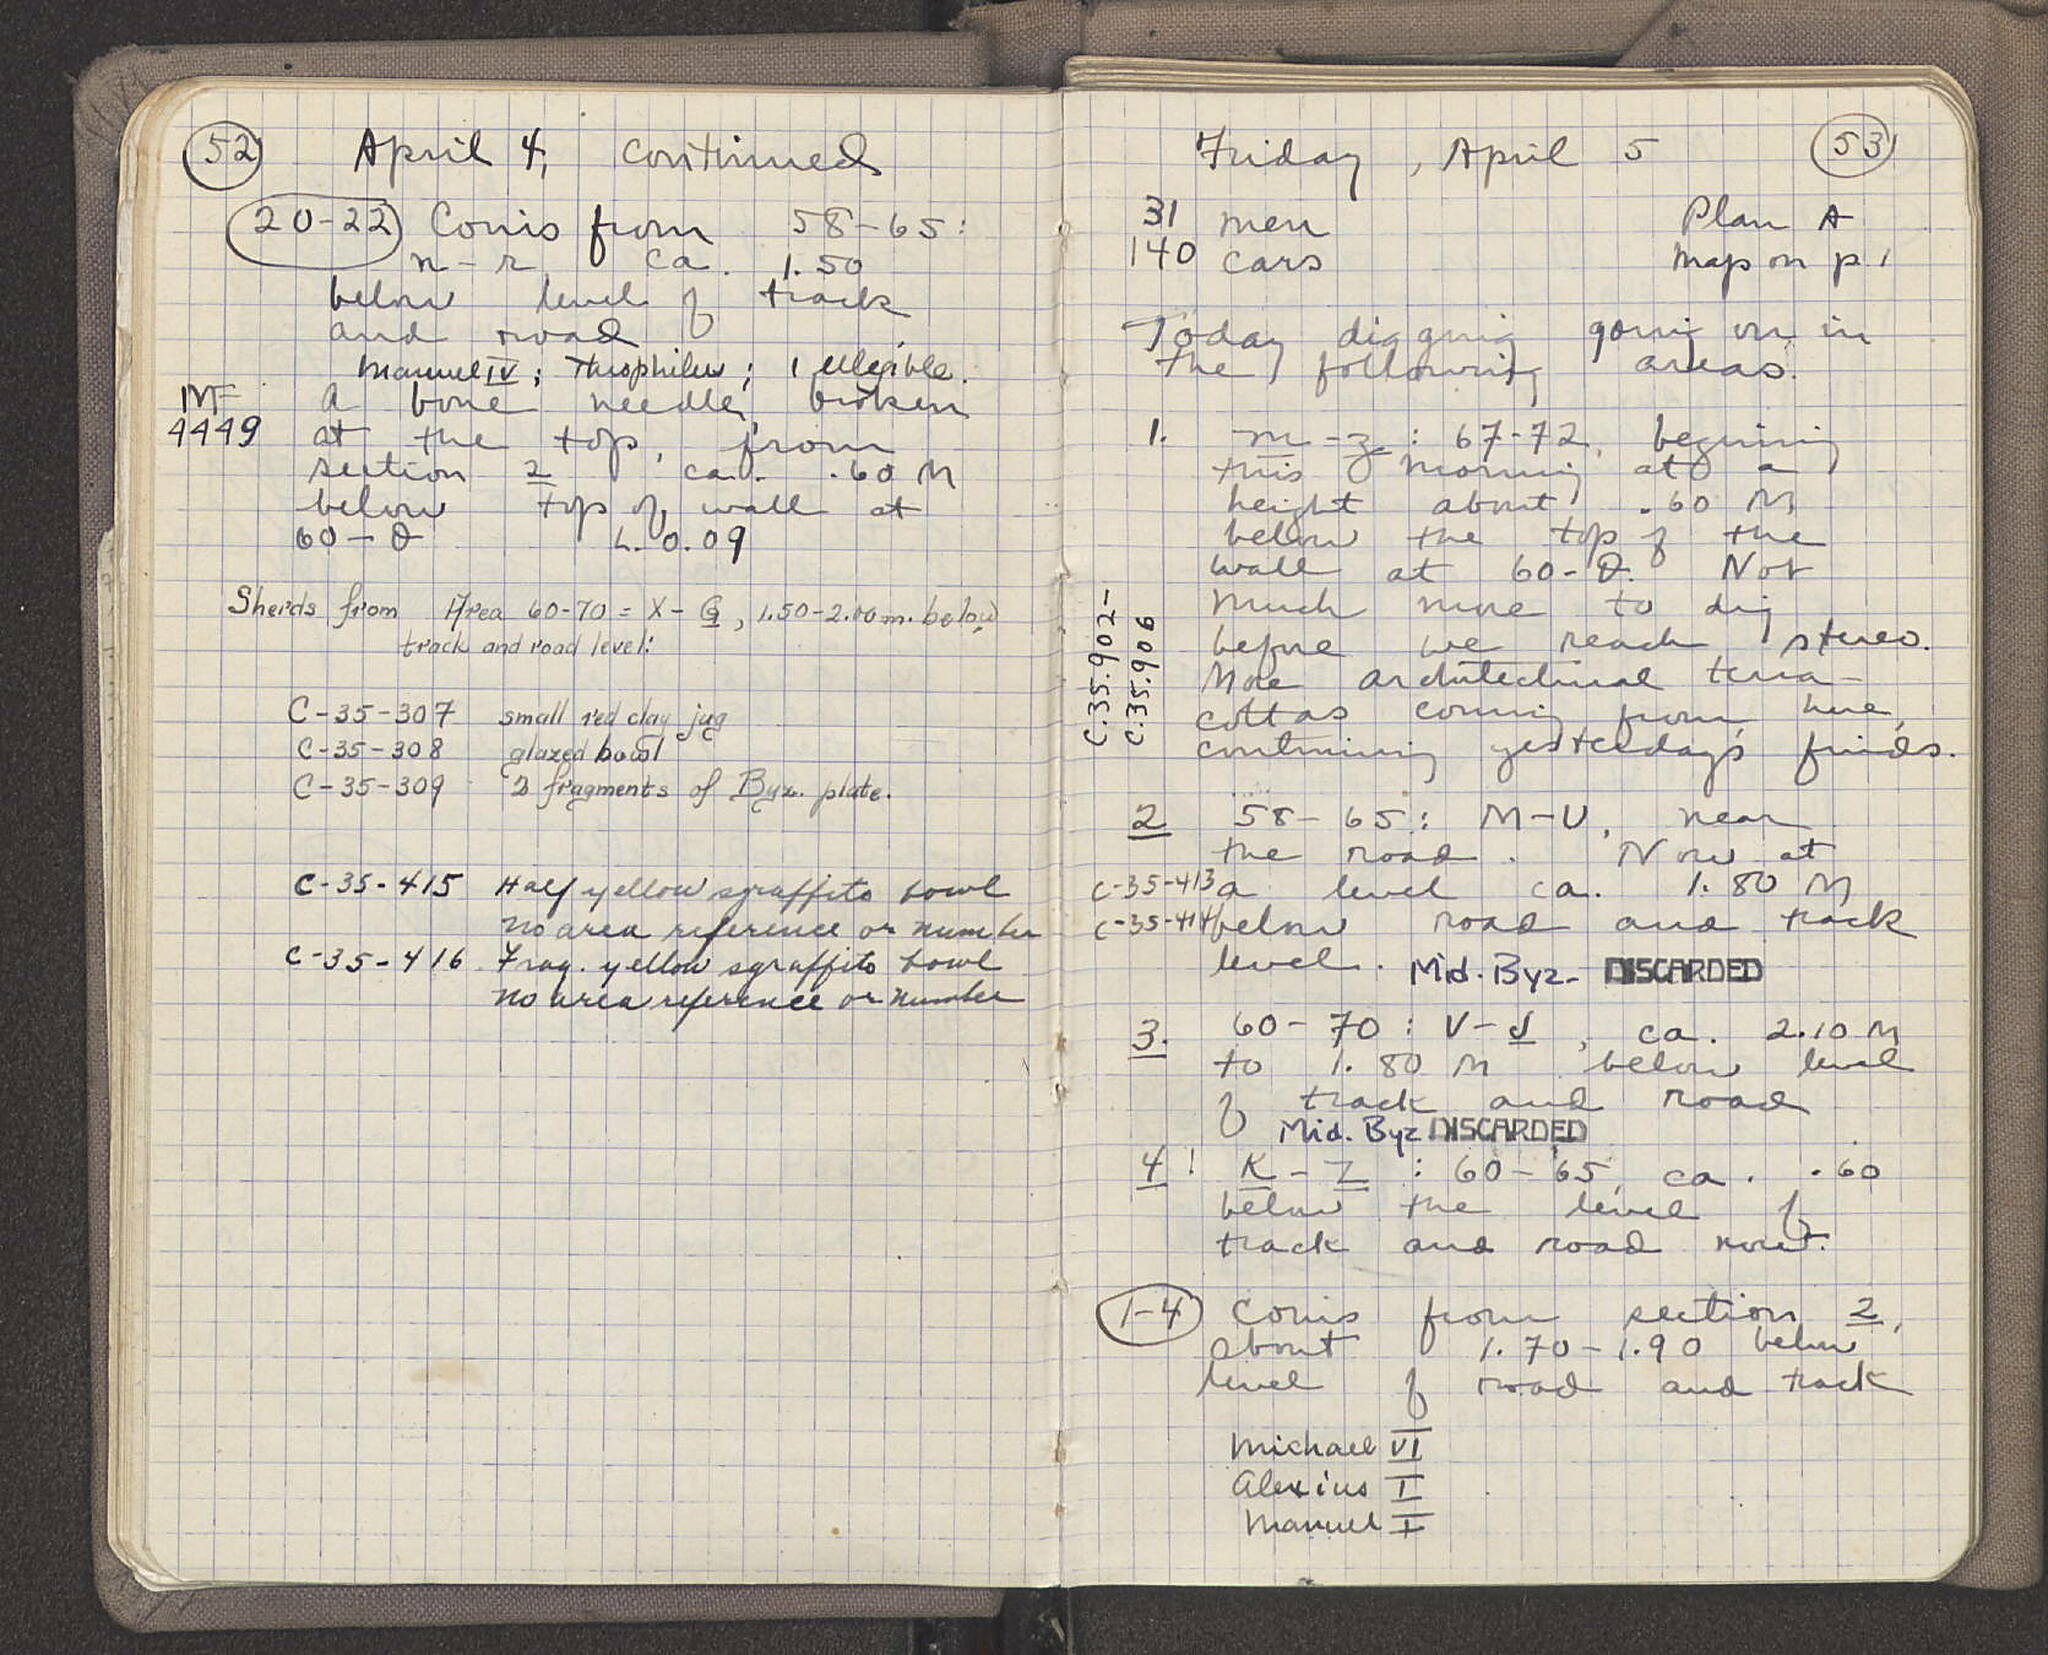 52 April 4, continued
20-22 Coins from 58-65:
n-r, ca. 1.50
below level of track
and road
Manuel IV; Theophilus; 1 illegible.
MF
4449
a bone needle, broken
at the top, from
section 2, ca. .60 M
below top of wall at
60-θ L. 0.09
Sherds from Area 60-70 = X-G, 1.50-2.00m. below
track and road level:
C-35-307 small red clay jug
C-35-308 glazed bowl
C-35-309 2 fragments of Byz. plate.
C-35-415 Half yellow sgraffito bowl
No area reference or number
C-35-416 Frag. yellow sgraffito bowl
No area reference or number
Friday, April 5 53
31 men Plan A
140 cars Map on p 1
Today digging going on in
the following areas:
1. m-z: 67-72, beginning
this morning at a
height about .60 M
below the top of the
wall at 60-θ. Not
much more to dig
before we reach stereo.
More architectural terra-
cottas coming from here,
continuing yesterday's finds.
C.35.902-
C.35.906
2 58-65: M-U, near
the road. Now at
C-35-413 a level ca. 1.80 M
C-35-414 below road and track
level. Mid. Byz- DISCARDED
3. 60-70: V-J, ca. 2.10 M
to 1.80 M below level
of track and road
Mid. Byz DISCARDED
4! K-Z: 60-65, ca. .60
below the level of
track and road now.
1-4 Coins from section 2,
about 1.70-1.90 below
level of road and track
Michael VI
Alexius I
Manuel I